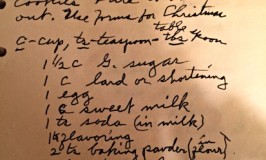 out. Use forms for Christmas
c-cup, ts-teaspoon-tbs spoon
table
1 1/2 c G. sugar
1 c lard or shortening
1 egg
1 c sweet milk
1 ts soda (in milk)
flavoring
2 ts baking powder (flour).